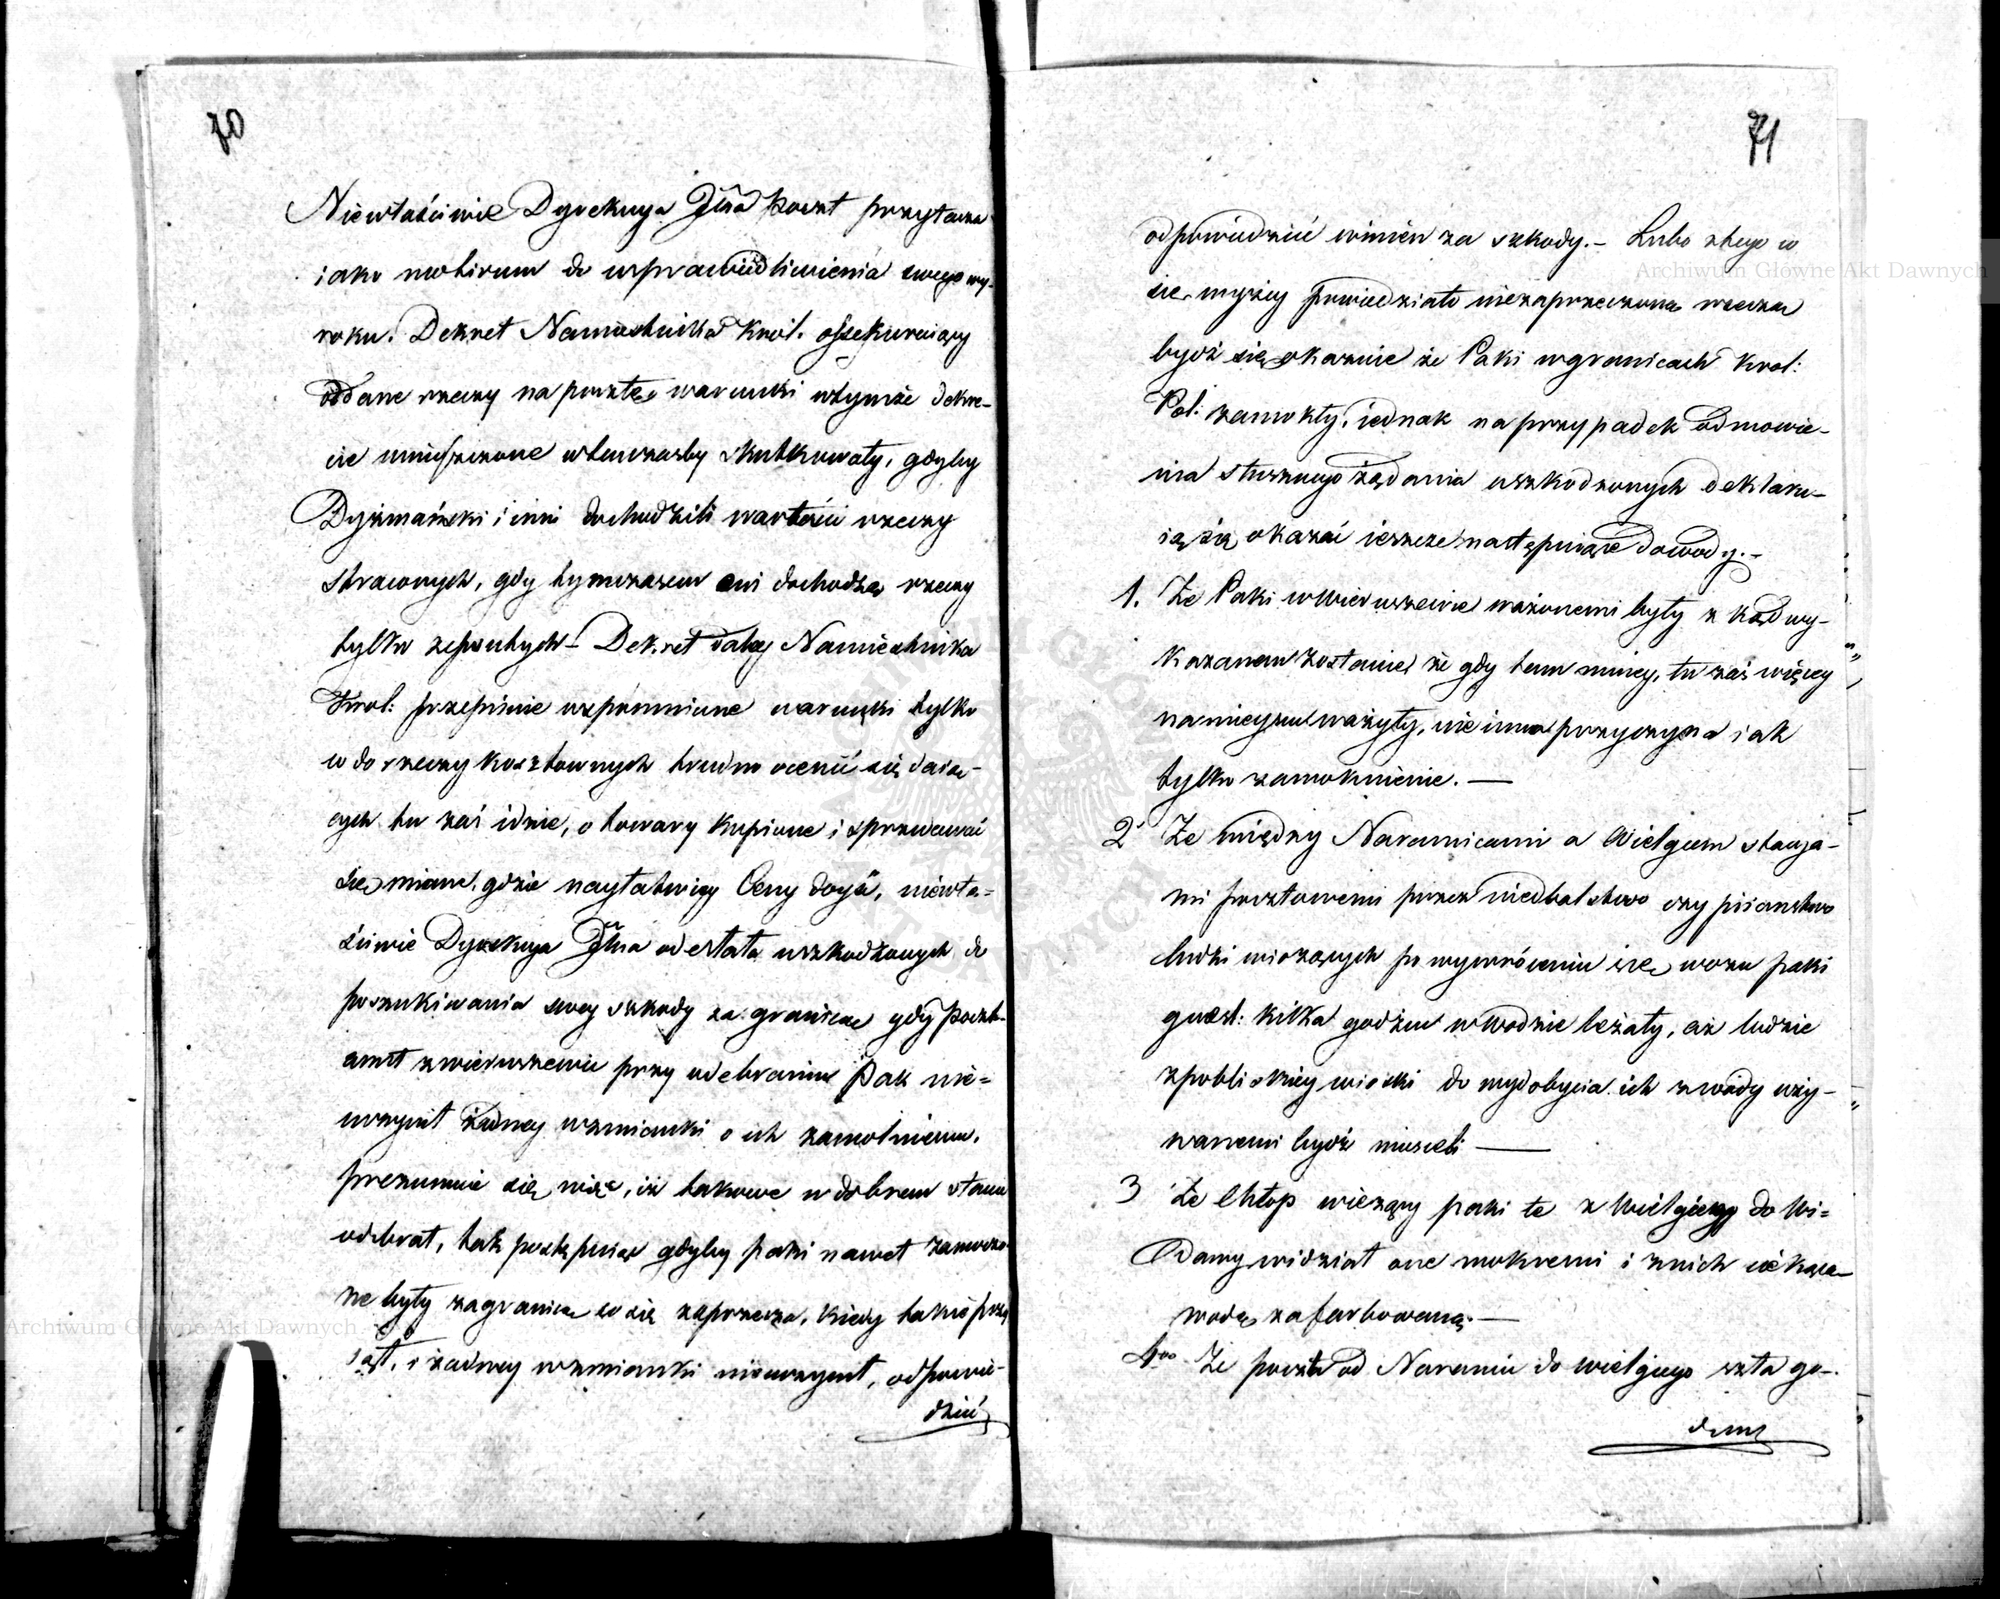 70
Niewłaściwie Dyrekcya Jlna Poczt przytacza
iako motivum do usprawiedliwienia swego wy-
roku. Dekret Namiestnika Król. assekuruiący
oddane rzeczy na pocztę, warunki wtymże dekre-
cie umieszczone wtenczasby skutkowały, gdyby
Dyzmański i inni dochodzili wartości rzeczy
straconych, gdy tymczasem oni dochodzą rzeczy
tylko zepsutych - Dekret daley Namiestnika
Król: przepisuie wspomnione warunki tylko
w do rzeczy kosztownych trudno ocenić się daią-
cych tu zaś idzie, o towary kupione i sprzedawać
się miane, gdzie nayłatwiey Ceny doyść, niewła-
ściwie Dyrekcya Jlna odesłała uszkodzonych do
poszukiwania swey szkody za granicę gdy Poczt-
amt z wieruszewie przy odebraniu Pak nie-
uczynił żadney wzmianki o ich zamoknieniu,
prezumuie się więc, iż takowe w dobrem stanie
odebrał, tak postępuiąc gdyby paki nawet zamoczo-
ne były zagranicą co się zaprzecza, kiedy takie przy
iął, i żadney wzmianki nieuczynił, odpowie-
dzieć
71
odpowiedzieć winien za szkody. - Lubo z tego co
się wyżey powiedziało niezaprzeczoną rzeczą
bydź się okazuie że Paki w granicach Krol:
Pol: zamokły, iednak na przypadek odmowie-
nia słusznego żądania uszkodzonych deklaru-
ią się okazać ieszcze następuiące dowody. -
1. Że Paki w Wieruszewie ważonemi były z kąd wy-
kazanem zostanie, że gdy tam mniey, tu zaś więcey
na mieyscu ważyły, nie inna przyczyna iak
tylko zamoknienie. —
2 Że między Naramicami a Wielgiem stacja-
mi pocztowemi przez niedbalstwo czy piianstwo
ludzi wiozących po wywróceniu się wozu paki
quest: kilka godzin w Wodzie leżały, aż ludzie
z pobliskiey wioski do wydobycia ich z wody uży-
wanemi bydź musieli —
3 Że Chłop wiezący paki te z Wielgiego do Wi-
dawy widział one mokremi i z nich ciekącą
wodę zafarbowaną. —
4to Że poczta od Naramic do Wielgiego szła go-
dzin
Archiwum Główne Akt Dawnych
Archiwum Główne Akt Dawnych